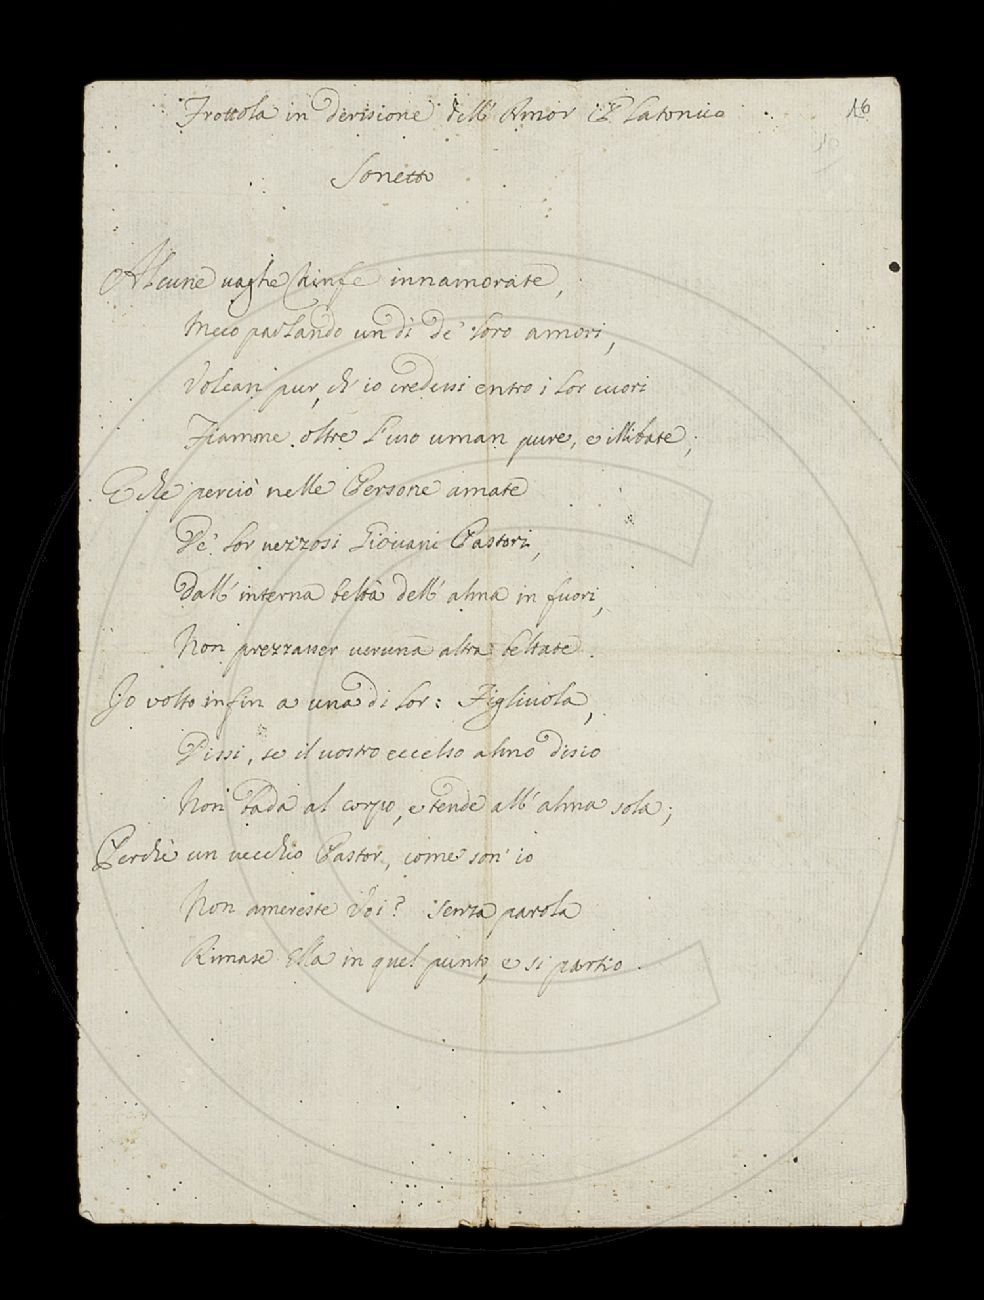 Frottola in derisione dell' Amor Platonico
16
Sonetto
Alcune vaghe Ninfe innamorate,
Meco parlando un dì de' loro amori,
Volean pur, ch' io credessi entro i lor cuori
Fiamme oltre l'uso uman pure, e illibate;
E che perciò nelle Persone amate
De' lor vezzosi Giovani Pastori,
Dall' interna beltà dell' alma in fuori,
Non prezzasser veruna altra beltate.
Io volto infin a una di lor: Figliuola,
Dissi, se il vostro eccelso almo disio
Non bada al corpo, e tende all' alma sola;
Perchè un vecchio Pastor, come son' io
Non amereste Voi? Senza parola
Rimase Ella in quel punto, e si partio.